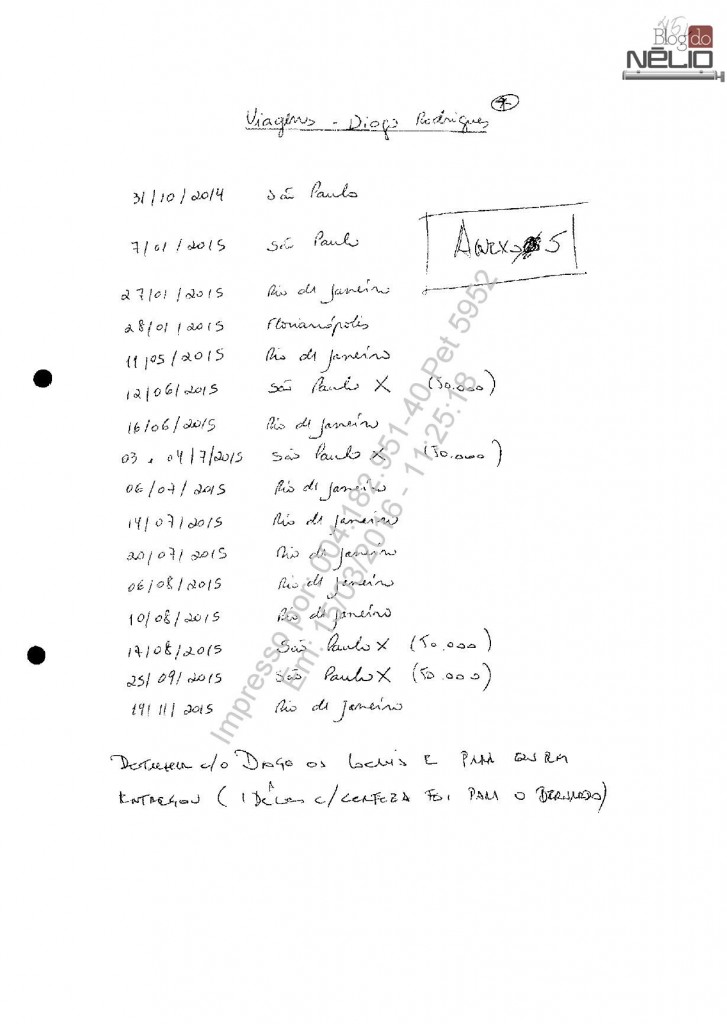 Blog do
NÉLIO
Viagens - Diogo Rodrigues
31/10/2014 São Paulo
7/01/2015 São Paulo
Anexo 5
27/01/2015 Rio de Janeiro
28/01/2015 Florianópolis
11/05/2015 Rio de Janeiro
12/06/2015 São Paulo X (50.000)
16/06/2015 Rio de Janeiro
03 e 04/7/2015 São Paulo X (50.000)
06/07/2015 Rio de Janeiro
14/07/2015 Rio de Janeiro
20/07/2015 Rio de Janeiro
06/08/2015 Rio de Janeiro
10/08/2015 Rio de Janeiro
17/08/2015 São Paulo X (50.000)
25/09/2015 São Paulo X (50.000)
19/11/2015 Rio de Janeiro
DETALHAR c/o DIOGO OS LOCAIS E PARA QUEM
ENTREGOU (1 DELAS C/CERTEZA FOI PARA O BERNARDO)
Impresso por: 004.182.951-40 Pet 5952
Em: 15/03/2016 - 11:25:18